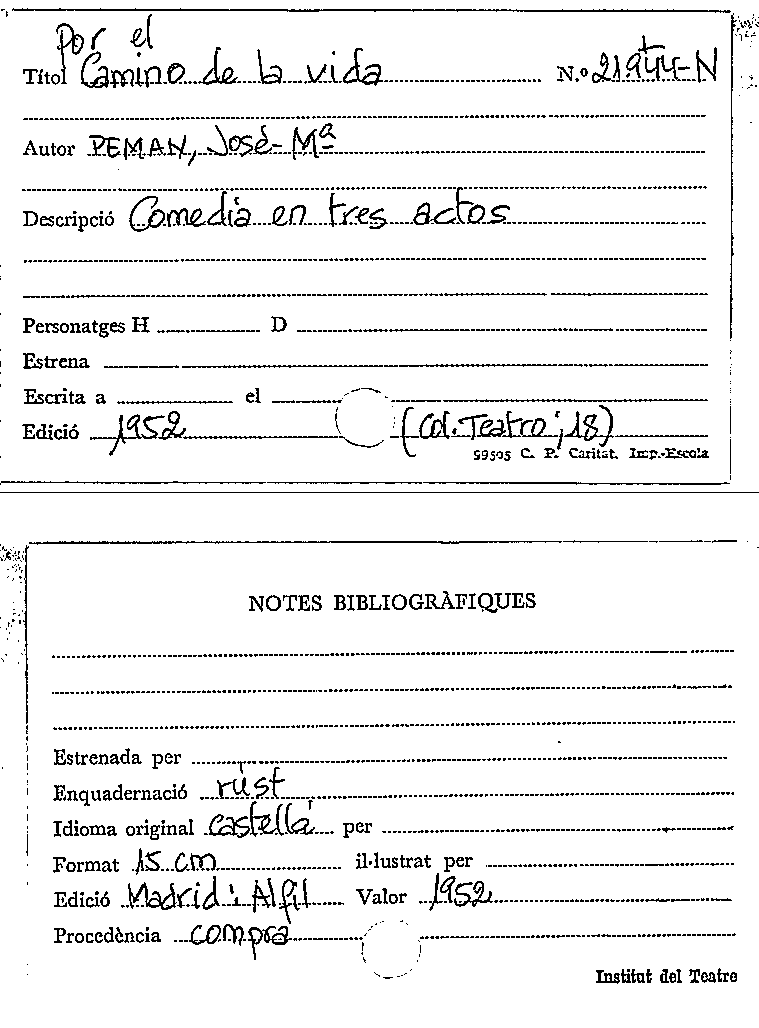 Por el
Títol Camino de la vida N.º 21944-N
Autor PEMAN, José-Mª
Descripció Comedia en tres actos
Personatges H D
Estrena
Escrita a el
Edició 1952 (Col. Teatro; 18)
99505 C. P. Caritat. Imp.-Escola
NOTES BIBLIOGRÀFIQUES
Estrenada per
Enquadernació rúst
Idioma original castellà per
Format 15 cm il·lustrat per
Edició Madrid: Alfil Valor 1952
Procedència compra
Institut del Teatre